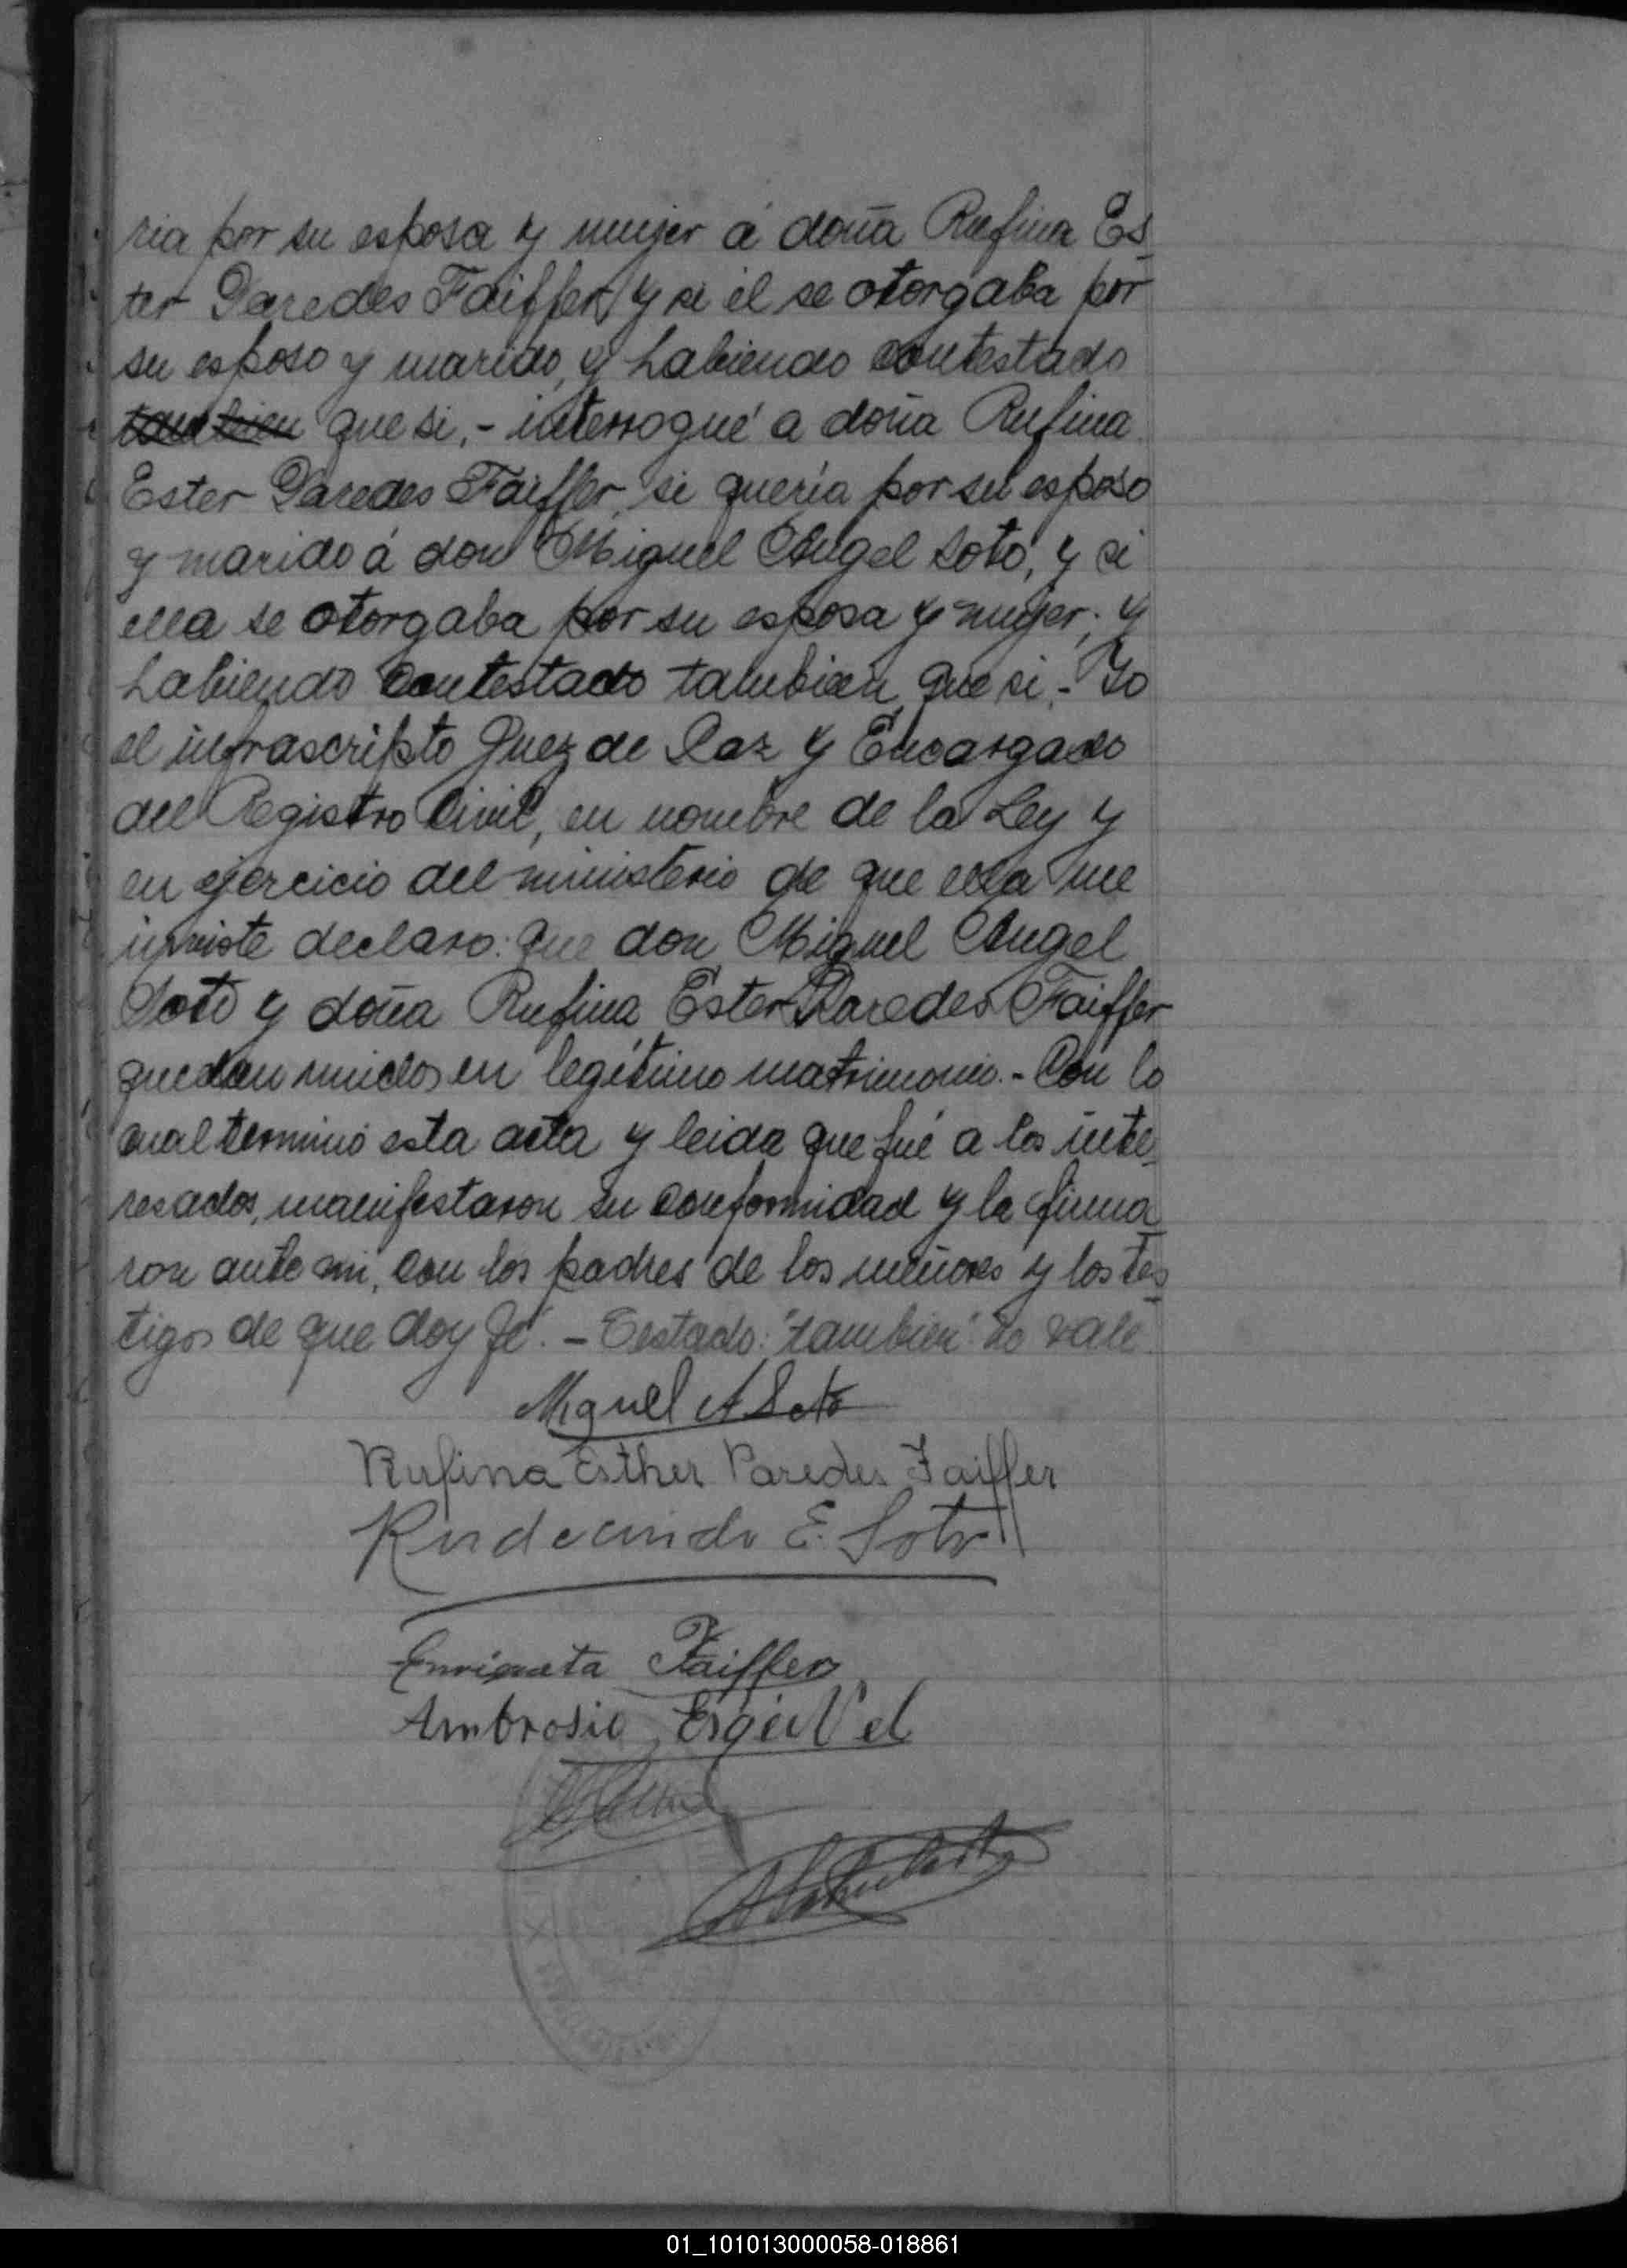 ria por su esposa y mujer á doña Rufina Es-
ter Paredes Faiffer, y si él se otorgaba por
su esposo y marido, y habiendo contestado
tambien que si,- interrogué a doña Rufina
Ester Paredes Faiffer, si quería por su esposo
y marido á don Miguel Angel Soto, y si
ella se otorgaba por su esposa y mujer; y
habiendo contestado tambien que si.- Yo
el infrascripto Juez de Paz y Encargado
del Registro Civil, en nombre de la Ley y
en ejercicio del ministerio de que ella me
inviste declaro: que don Miguel Angel
Soto y doña Rufina Ester Paredes Faiffer
quedan unidos en legítimo matrimonio.- Con lo
cual terminó esta acta y leida que fué a los inte-
resados, manifestaron su conformidad y la firma-
ron ante mi, con los padres de los menores y los tes-
tigos de que doy fé.- Testado: "tambien": no vale.
Miguel A Soto
Rufina Esther Paredes Faiffer
Rudecindo E. Soto
Enriqueta Faiffer
Ambrosio Esquivel
01_101013000058-018861